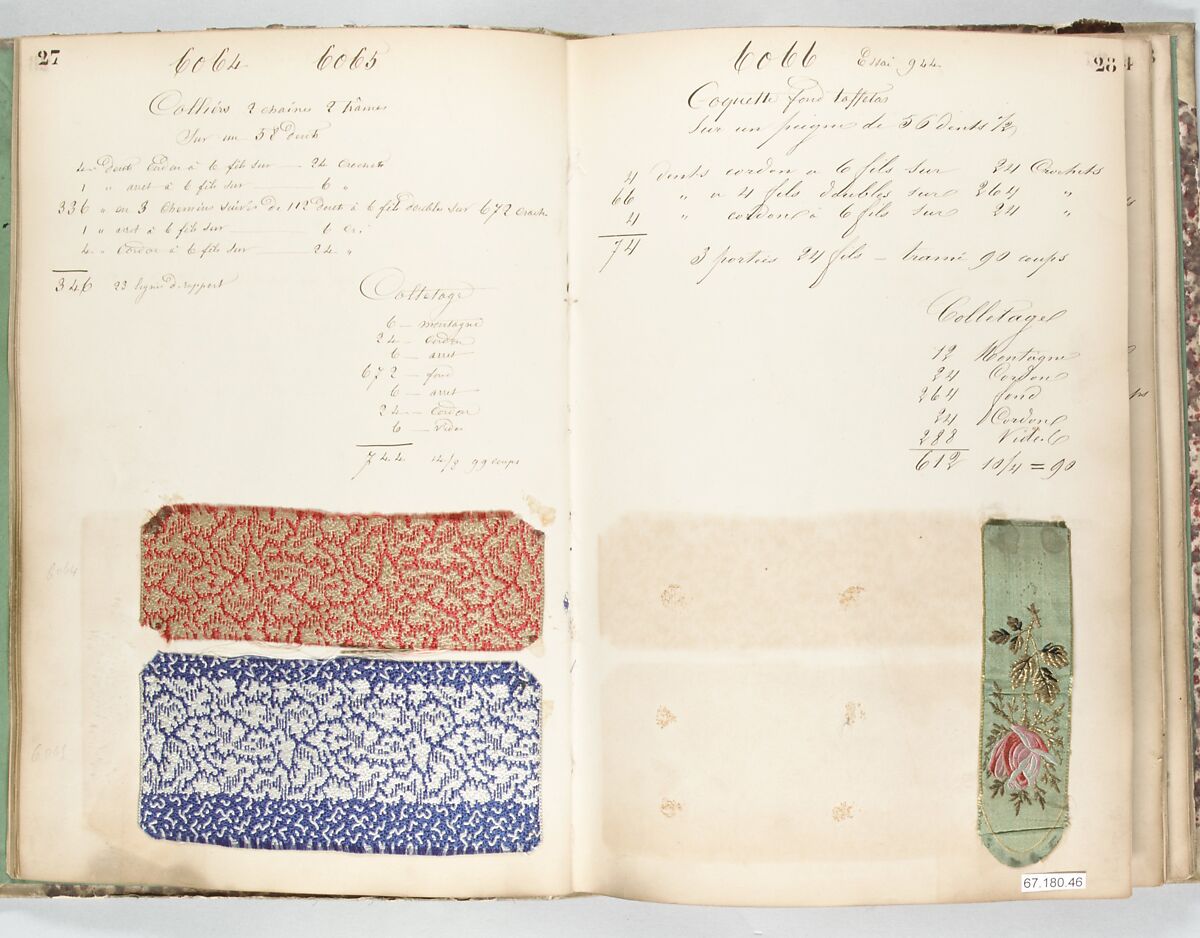 27
6064 6065
Colliers 2 chaînes 2 trâmes
Sur un 58 dents
4 dents Cordon à 6 fils sur — 24 Crochets
1 " arret à 6 fils sur — 6 "
336 " en 3 chemins suivis de 112 dents à 6 fils doubles sur 672 Croch
1 " arret à 6 fils sur — 6 Cr.
4 " Cordon à 6 fils sur — 24 "
346 23 lignes de rapport
Colletage
6 — montagne
24 — cordon
6 — arret
672 — fond
6 — arret
24 — cordon
6 — vides
744 4/3 99 coups
6064
6065
6066 Essai 944
28
Coquette fond taffetas
Sur un peigne de 56 dents 1/2
4 dents cordon a 6 fils sur 24 Crochets
66 " a 4 fils doubles sur 264 "
4 " cordon à 6 fils sur 24 "
74
3 portées 24 fils — tramé 90 coups
Colletage
12 Montagne
24 Cordon
264 fond
24 Cordon
288 Vides
612 10/4 = 90
67.180.46